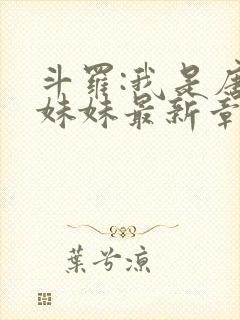 斗罗:我是唐
妹妹最新章
葉兮凉